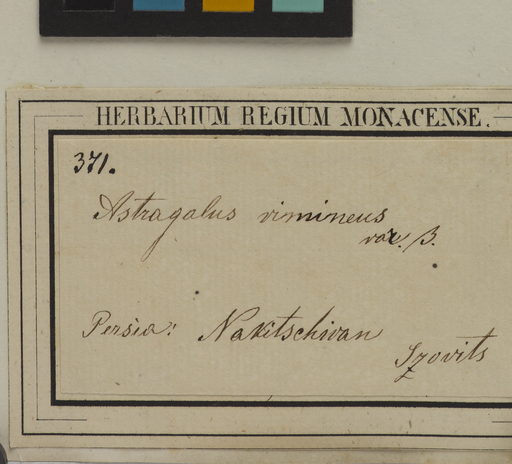 HERBARIUM REGIUM MONACENSE.
371.
Astragalus vimineus
var. β.
Persia: Nakitschivan
Szovits